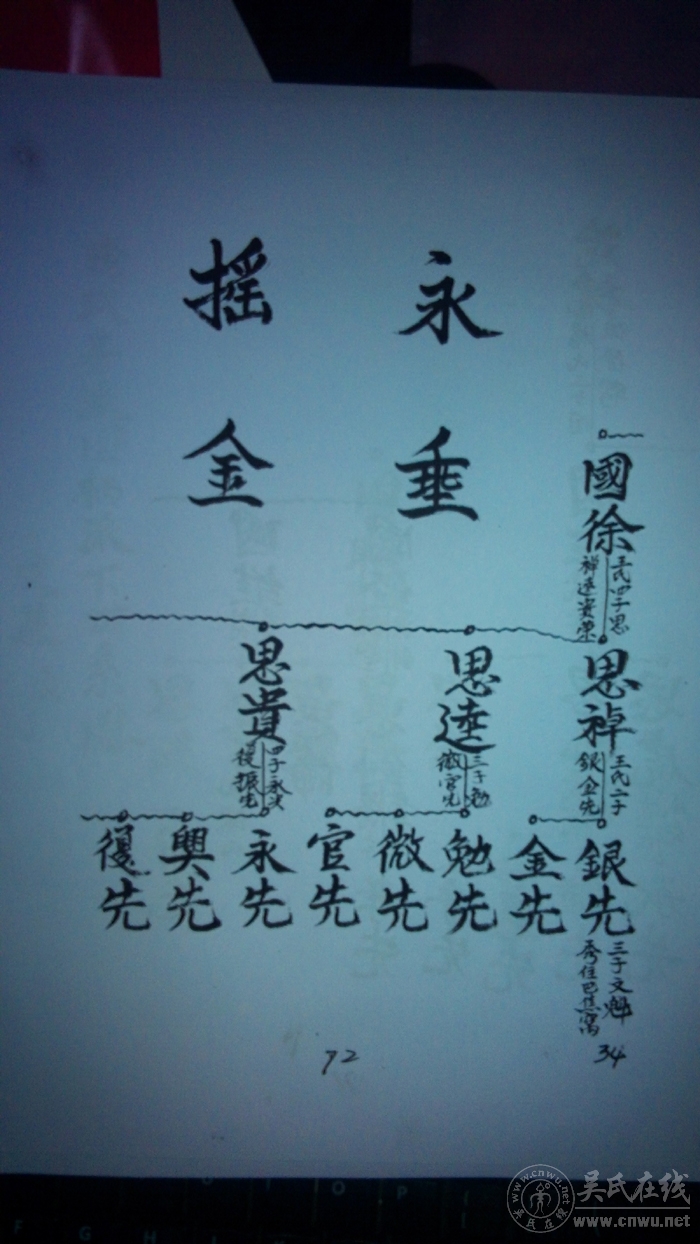 永垂
搖金
國徐
王氏四子思
禅達貴榮
思禅
王氏二子
銀金先
思達
三子勉
微官先
思貴
四子永興
復振先
銀先
三子文魁
金先
勉先
微先
官先
永先
興先
復先
34
72
吴氏在线
www.cnwu.net